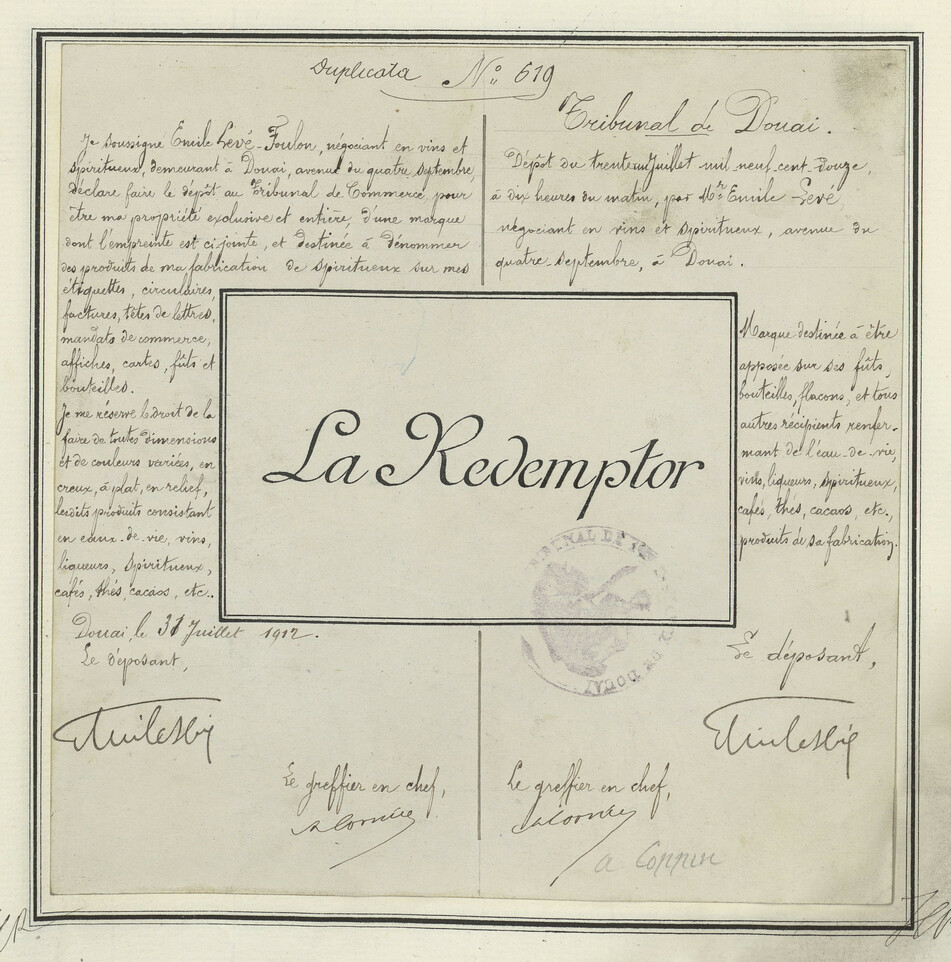 Duplicata N° 619
Je soussigné Emile Levé-Foulon, négociant en vins et
spiritueux, demeurant à Douai, avenue du quatre septembre,
déclare faire le dépôt au Tribunal de Commerce, pour
être ma propriété exclusive et entière d'une marque
dont l'empreinte est ci-jointe, et destinée à dénommer
des produits de ma fabrication de spiritueux sur mes
étiquettes, circulaires,
factures, têtes de lettres,
mandats de commerce,
affiches, cartes, fûts et
bouteilles.
Je me réserve le droit de la
faire de toutes dimensions
et de couleurs variées, en
creux, à plat, en relief,
lesdits produits consistant
en eaux-de-vie, vins,
liqueurs, spiritueux,
cafés, thés, cacaos, etc..
Douai, le 31 Juillet 1912.
Le déposant,
Le greffier en chef,
La Redemptor
Tribunal de Douai.
Dépôt du trente un Juillet mil neuf cent douze,
à dix heures du matin, par Mr Emile Levé,
négociant en vins et spiritueux, avenue du
quatre-septembre, à Douai.
Marque destinée à être
apposée sur ses fûts,
bouteilles, flacons, et tous
autres récipients renfer-
mant de l'eau-de-vie,
vins, liqueurs, spiritueux,
cafés, thés, cacaos, etc.,
produits de sa fabrication.
Le déposant,
Le greffier en chef,
a Coppin